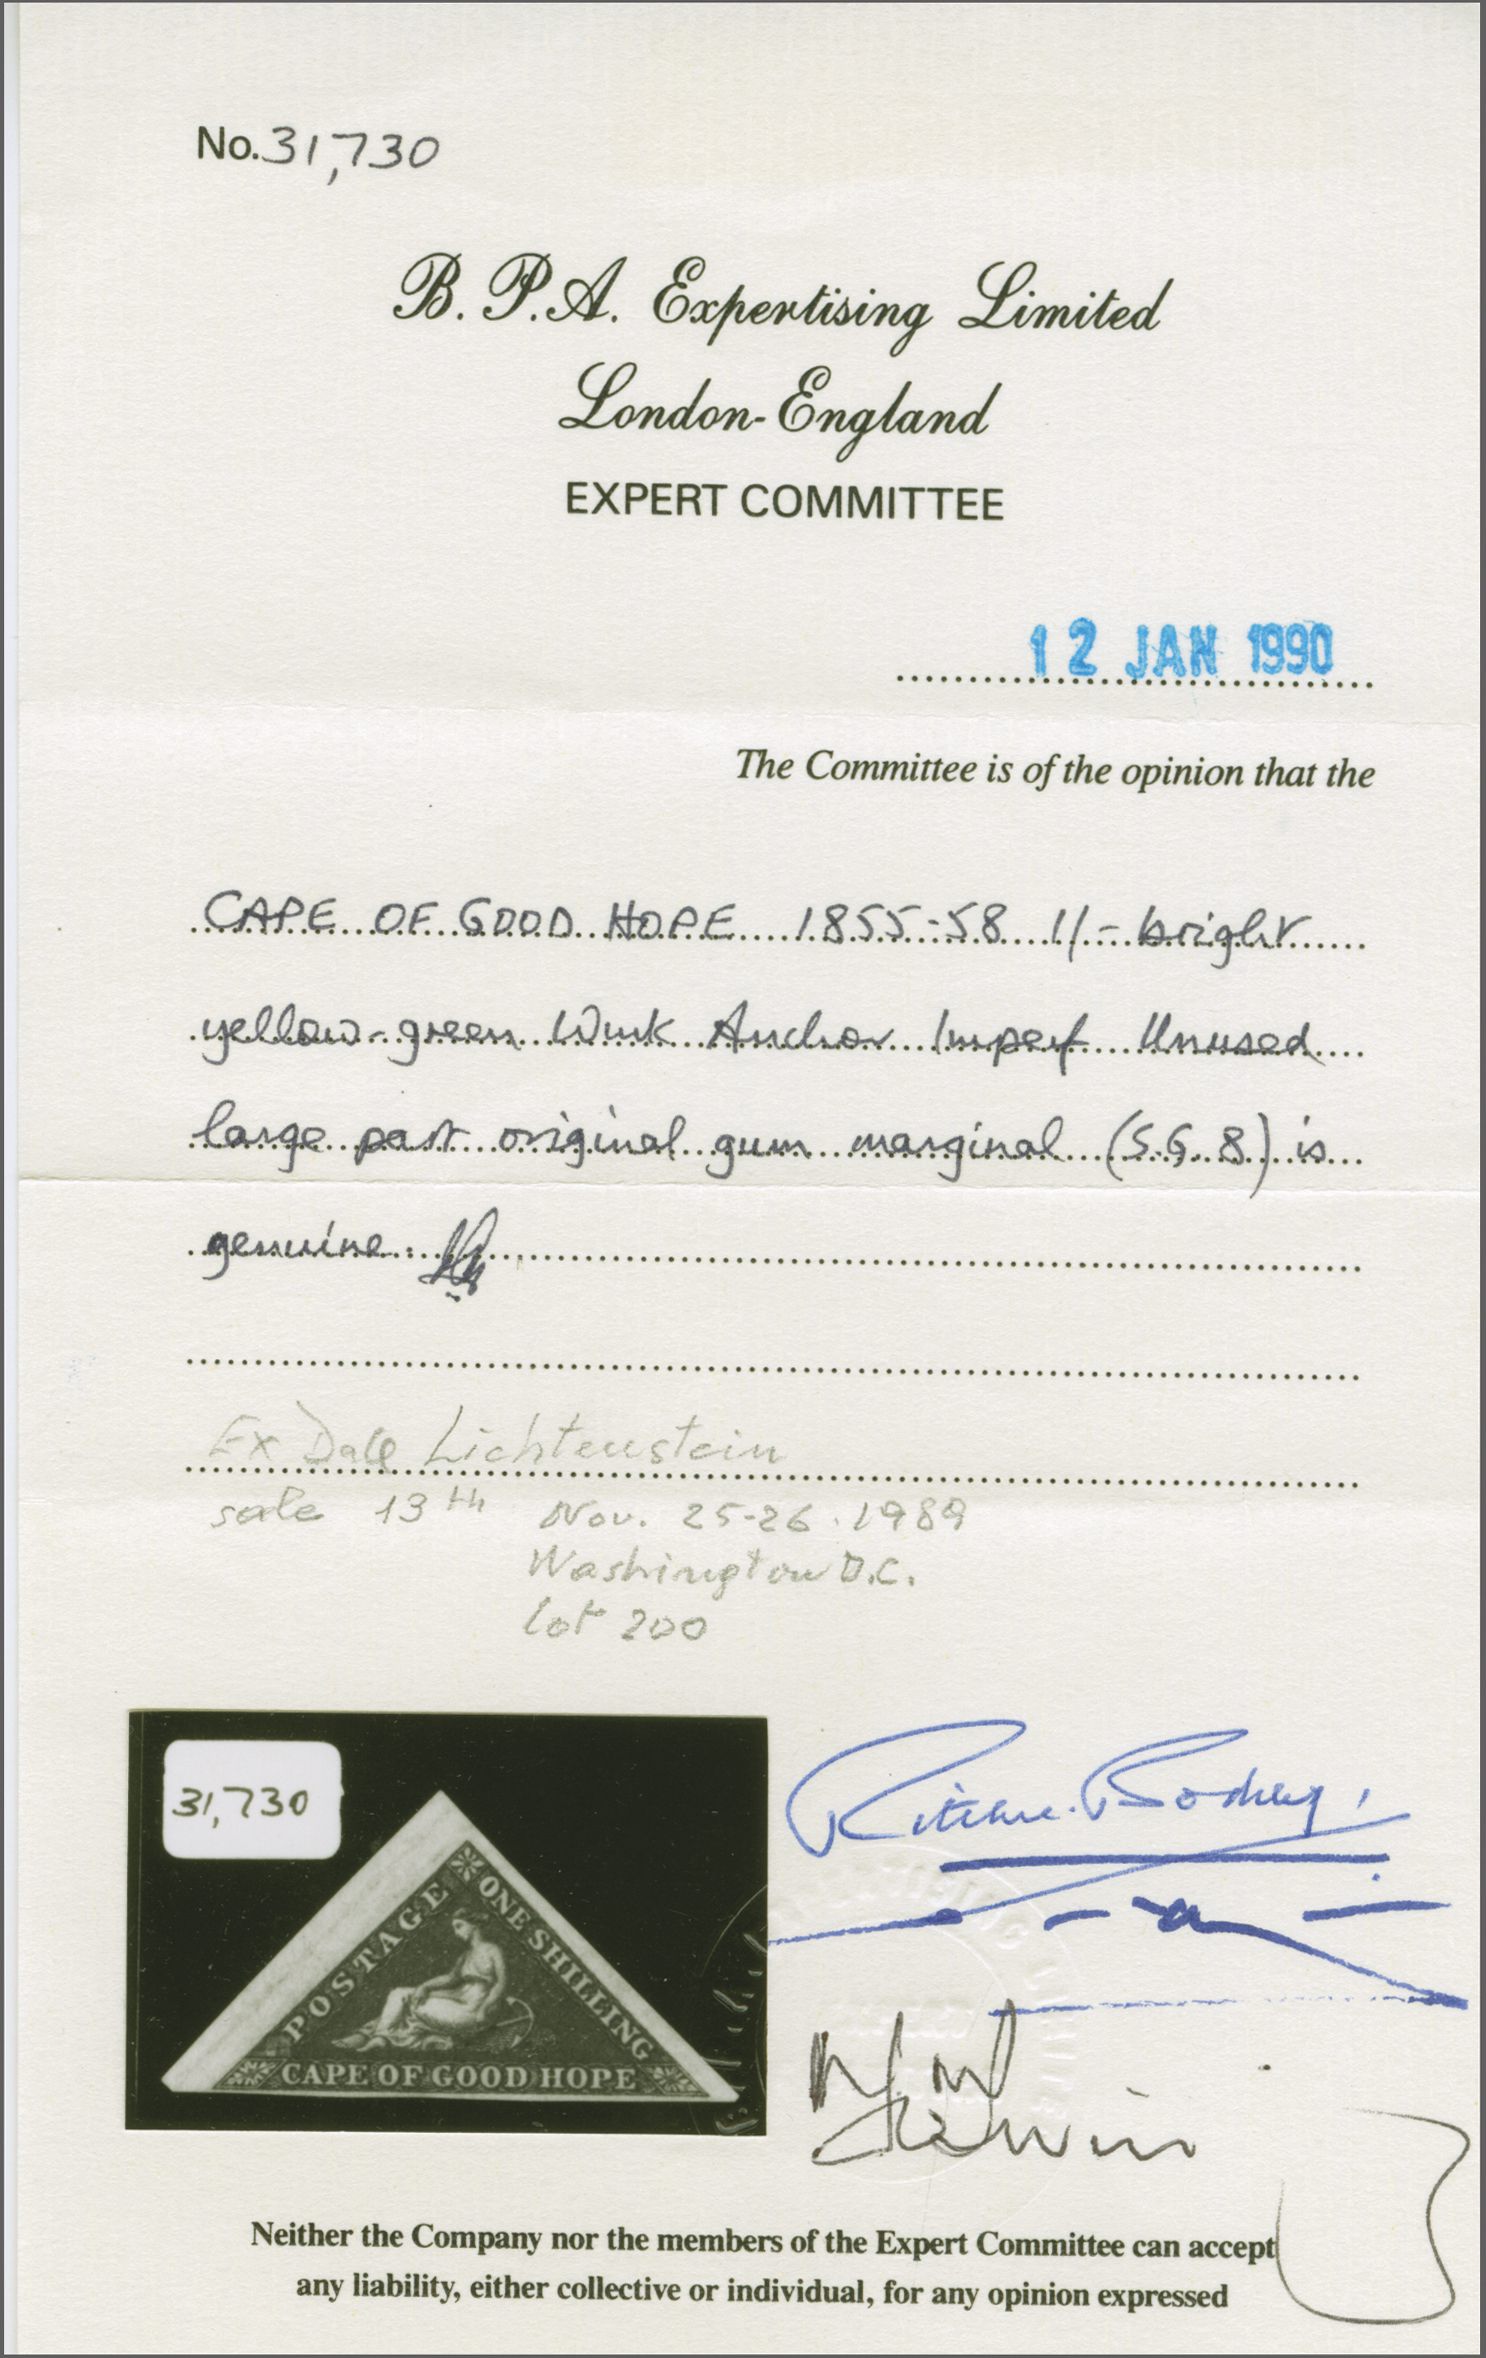 No. 31,730
B. P. A. Expertising Limited
London-England
EXPERT COMMITTEE
12 JAN 1990
The Committee is of the opinion that the
CAPE OF GOOD HOPE 1855-58 1/- bright
yellow-green Wmk Anchor Imperf Unused
large part original gum marginal (S.G. 8) is
genuine.
Ex Dale Lichtenstein
sale 13th Nov. 25-26. 1989
Washington D.C.
lot 200
31,730
POSTAGE
ONE SHILLING
CAPE OF GOOD HOPE
Neither the Company nor the members of the Expert Committee can accept
any liability, either collective or individual, for any opinion expressed